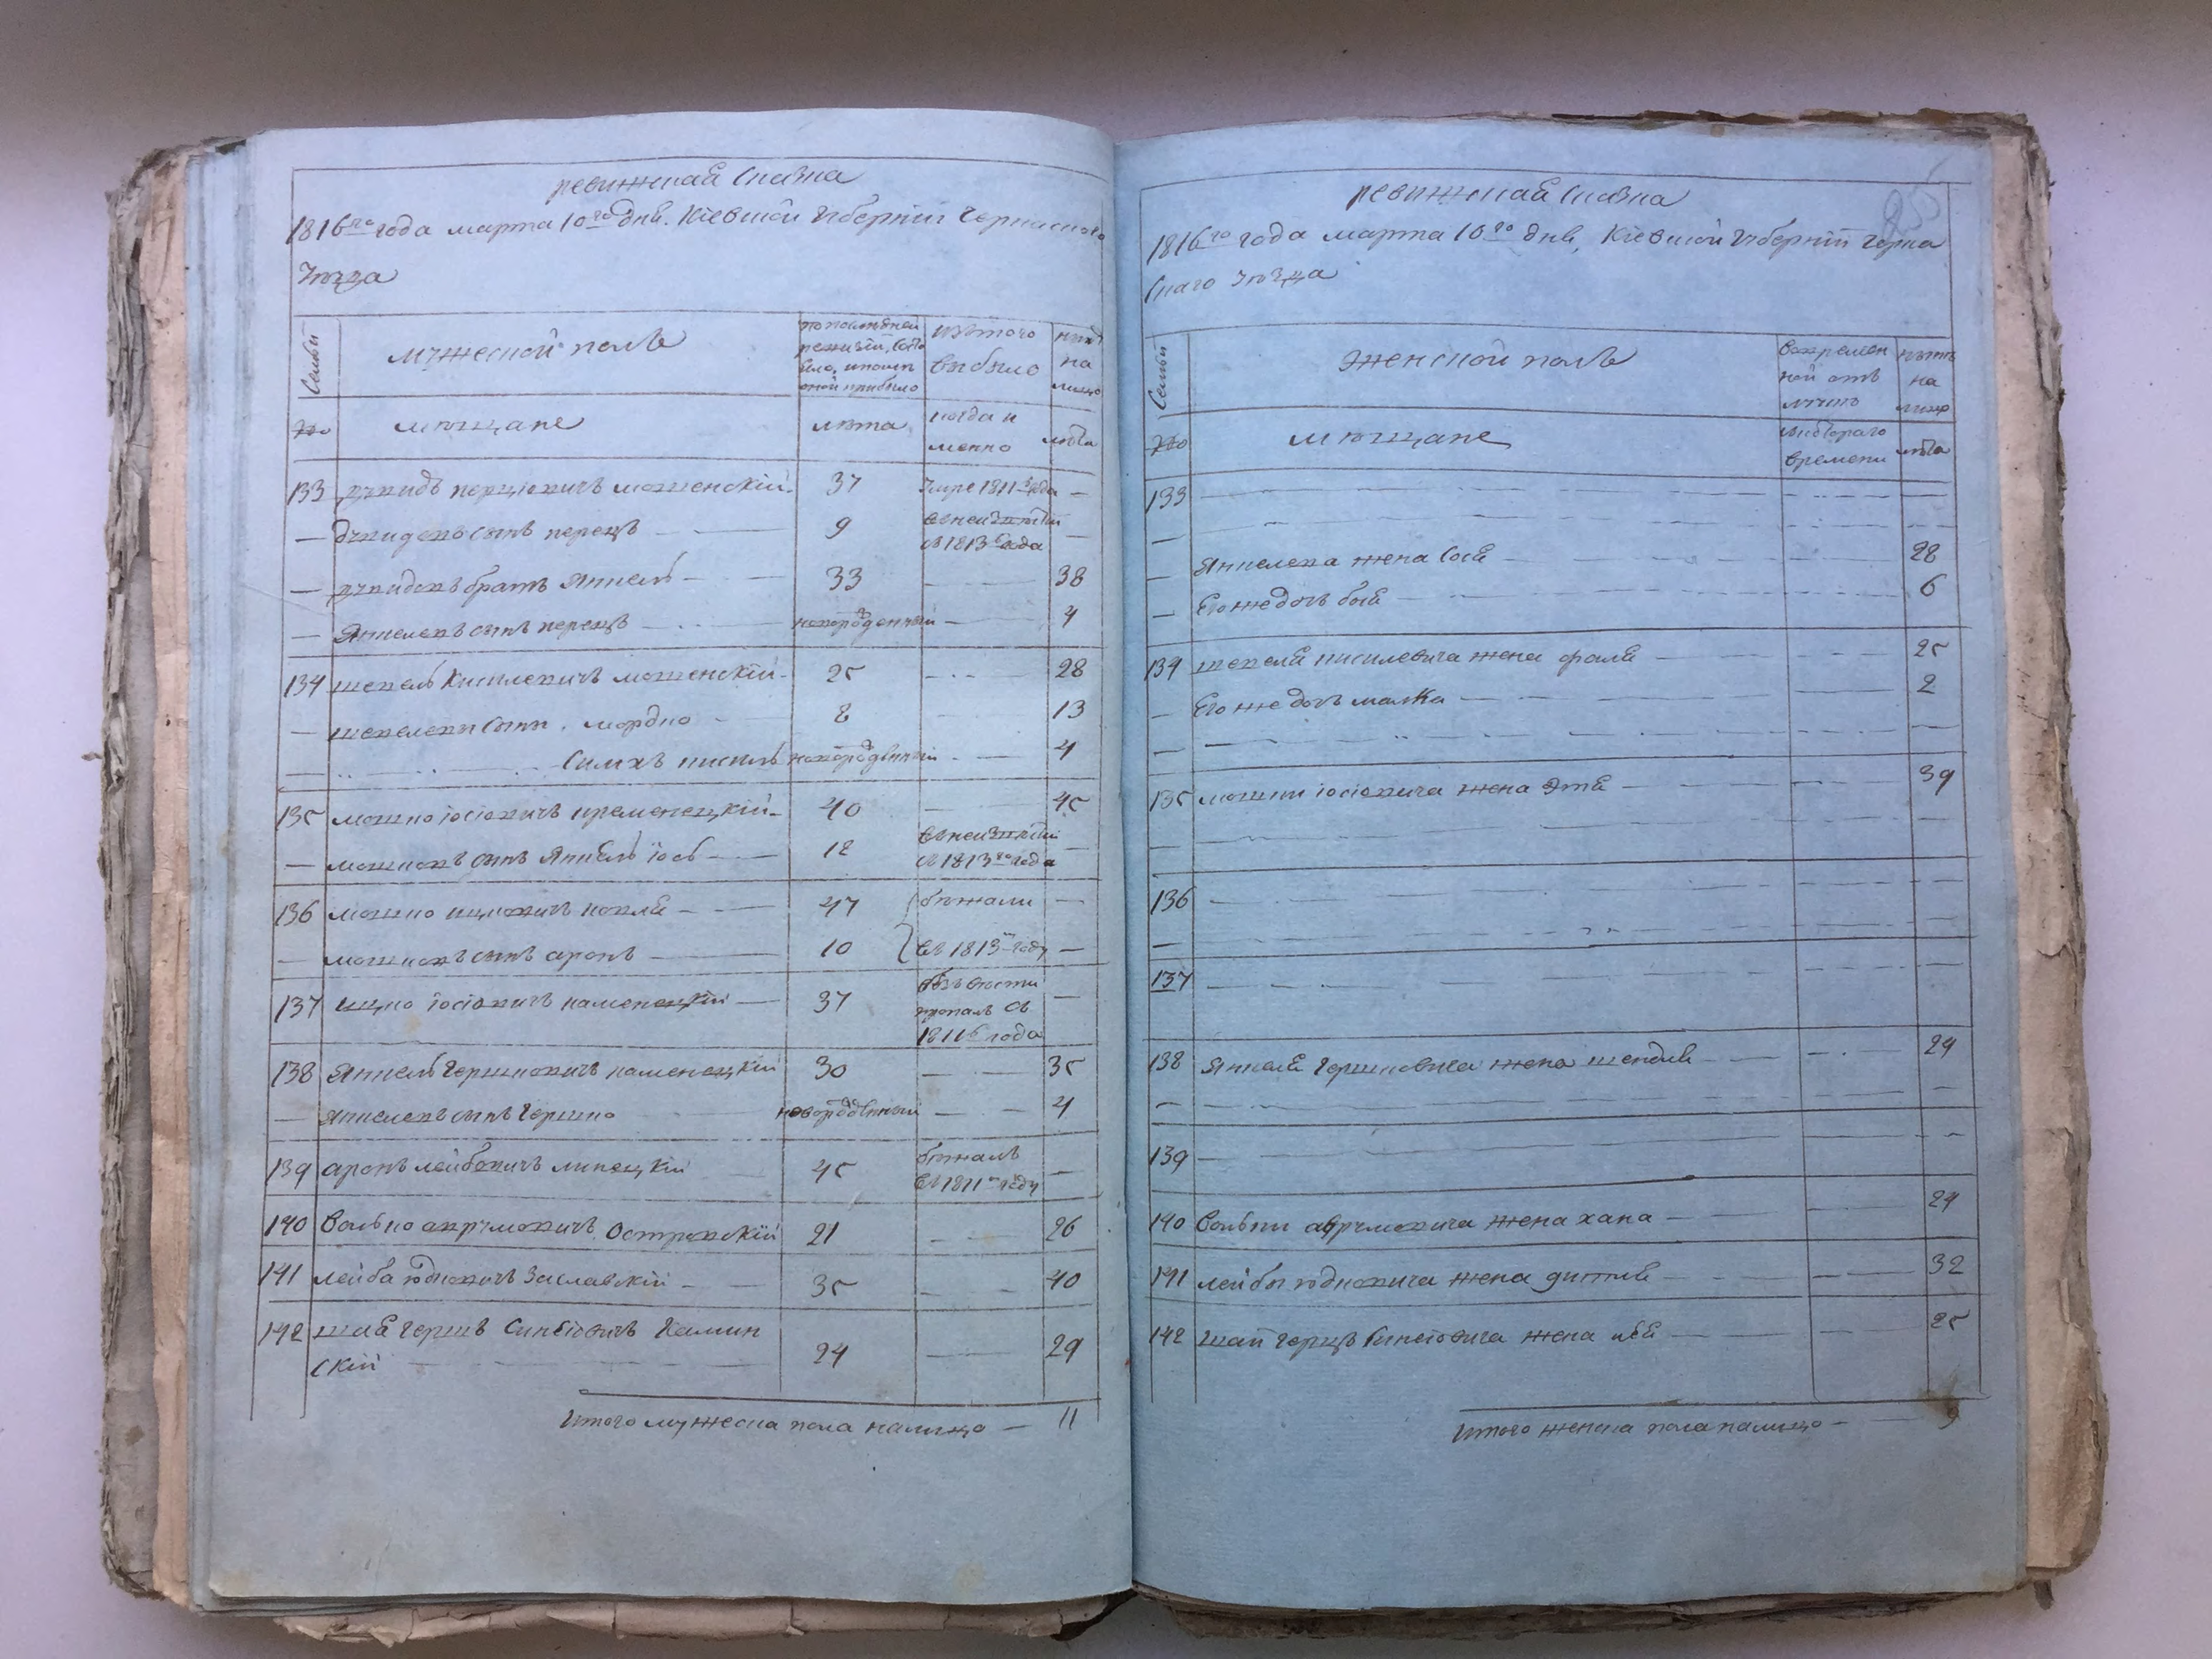 ревижская сказка
1816го года марта 10го дня. Кіевской губерніи Черкаского
уѣзда
Семьи
мужеской полъ
по последней
ревизіи, состо
яло, и после
оной прибыло
изъ того
выбыло
нынѣ
на
лицо
№
мѣщане
лѣта
когда и
менно
лѣта
133 дувидъ перцовичъ мошенскій 37 умре 1811 года —
— дувидовъ сынъ перецъ 9 —
съ 1813 года
— дувидовъ братъ Янкель 33 38
— Янкелевъ сынъ перецъ новорожденный 4
134 шевель Кисилевичъ мошенскій 25 28
— шевелевы сыны. мордко 8 13
Симхъ кисиль новорожденный 4
135 мошко іосіовичъ кременецкій 40 45
— мошковъ сынъ Янкель іось 12 —
съ 1813го года
136 мошко ицковичъ 47 бежали —
— мошковъ сынъ аронъ 10 въ 1813м году —
137 ицко іосіовичъ каменецкій 37 безъ вести —
пропалъ съ
1811го года
138 Янкель Гершковичъ каменецкій 30 35
— Янкелевъ сынъ Гершко новорожденный 4
139 аронъ лейбовичъ липецкій 45 бежалъ —
въ 1811м году
140 Волько аврумовичъ Островскій 21 26
141 лейба юдковичъ Заславскій 35 40
142 шаё Гершъ Камин
скій 24 29
Итого мужеска пола налицо — 11
ревижская сказка
1816го года марта 10го дня, Кіевской губерніи Черка
скаго уѣзда
Семьи
женской полъ
во времен
ной отъ
лучкѣ
нынѣ
на
лицо
№
мѣщане
съ котораго
времени
лѣта
133
Янкелева жена Сося 28
— Его же дочь бося 6
134 шевеля кисилевича жена 25
— Его же дочь малка 2
135 мошки іосіовича жена Этя 39
136
137
138 Янкеля Гершковича жена шендля 24
139
140 Вольки аврумовича жена хана 24
141 лейбы юдковича жена дитля 32
142 шаи Герца жена 25
Итого женска пола налицо — 9